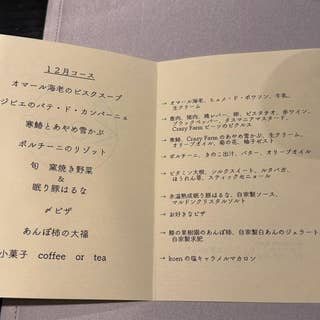 12月コース
オマール海老のビスクスープ
ジビエのパテ・ド・カンパーニュ
寒鰆とあやめ雪かぶ
ポルチーニのリゾット
旬 窯焼き野菜
&
眠り豚はるな
〆ピザ
あんぽ柿の大福
小菓子 coffee or tea
→ オマール海老、ヒュメ・ド・ポワソン、牛乳、
生クリーム
→ 鹿肉、猪肉、鶏レバー、卵、ピスタチオ、赤ワイン、
ブラックペッパー、タスマニアマスタード、
Crazy Farm ビーツのピクルス
→ 寒鰆、Crazy Farm のあやめ雪かぶ、生クリーム、
オリーブオイル、菊の花、柚子ゼスト
→ ポルチーニ、きのこ出汁、バター、オリーブオイル
→ ビタミン大根、シルクスイート、ルタバガ、
ほうれん草、スティックセニョール
→ 氷温熟成眠り豚はるな、自家製ソース、
マルドンクリスタルソルト
→ お好きなピザ
→ 鯵の果樹園のあんぽ柿、自家製白あんのジェラート
自家製求肥
→ koen の塩キャラメルマカロン